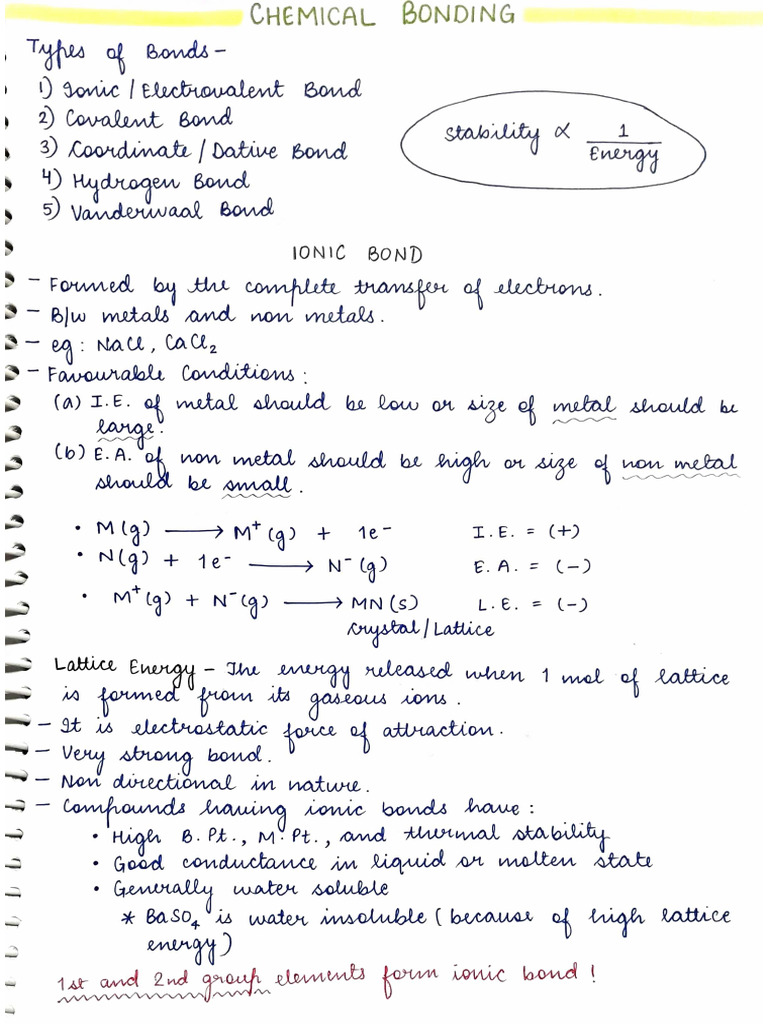 CHEMICAL BONDING
Types of Bonds -
1) Ionic / Electrovalent Bond
2) Covalent Bond
3) Coordinate / Dative Bond
4) Hydrogen Bond
5) Vanderwaal Bond
Stability ∝ 1 / Energy
IONIC BOND
- Formed by the complete transfer of electrons.
- B/w metals and non metals.
- eg: NaCl, CaCl₂
- Favourable Conditions:
(a) I.E. of metal should be low or size of metal should be
large.
(b) E.A. of non metal should be high or size of non metal
should be small.
• M(g) ⟶ M⁺(g) + 1e⁻ I.E. = (+)
• N(g) + 1e⁻ ⟶ N⁻(g) E.A. = (-)
• M⁺(g) + N⁻(g) ⟶ MN(s) L.E. = (-)
Crystal/Lattice
Lattice Energy - The energy released when 1 mol of lattice
is formed from its gaseous ions.
- It is electrostatic force of attraction.
- Very strong bond.
- Non directional in nature.
- Compounds having ionic bonds have:
• High B.Pt., M.Pt., and thermal stability
• Good conductance in liquid or molten state
• Generally water soluble
* BaSO₄ is water insoluble (because of high lattice
energy)
1st and 2nd group elements form ionic bond!